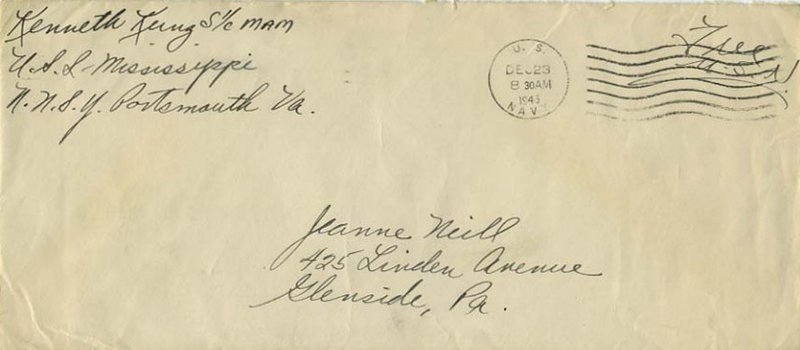 Kenneth Kung S 1/c MAM
U.S.S. Mississippi
N.N.S.Y. Portsmouth Va.
U. S.
DEC 23
8 30 AM
1945
NAVY
Free
U.S.N.
Jeanne Neill
425 Linden Avenue
Glenside, Pa.